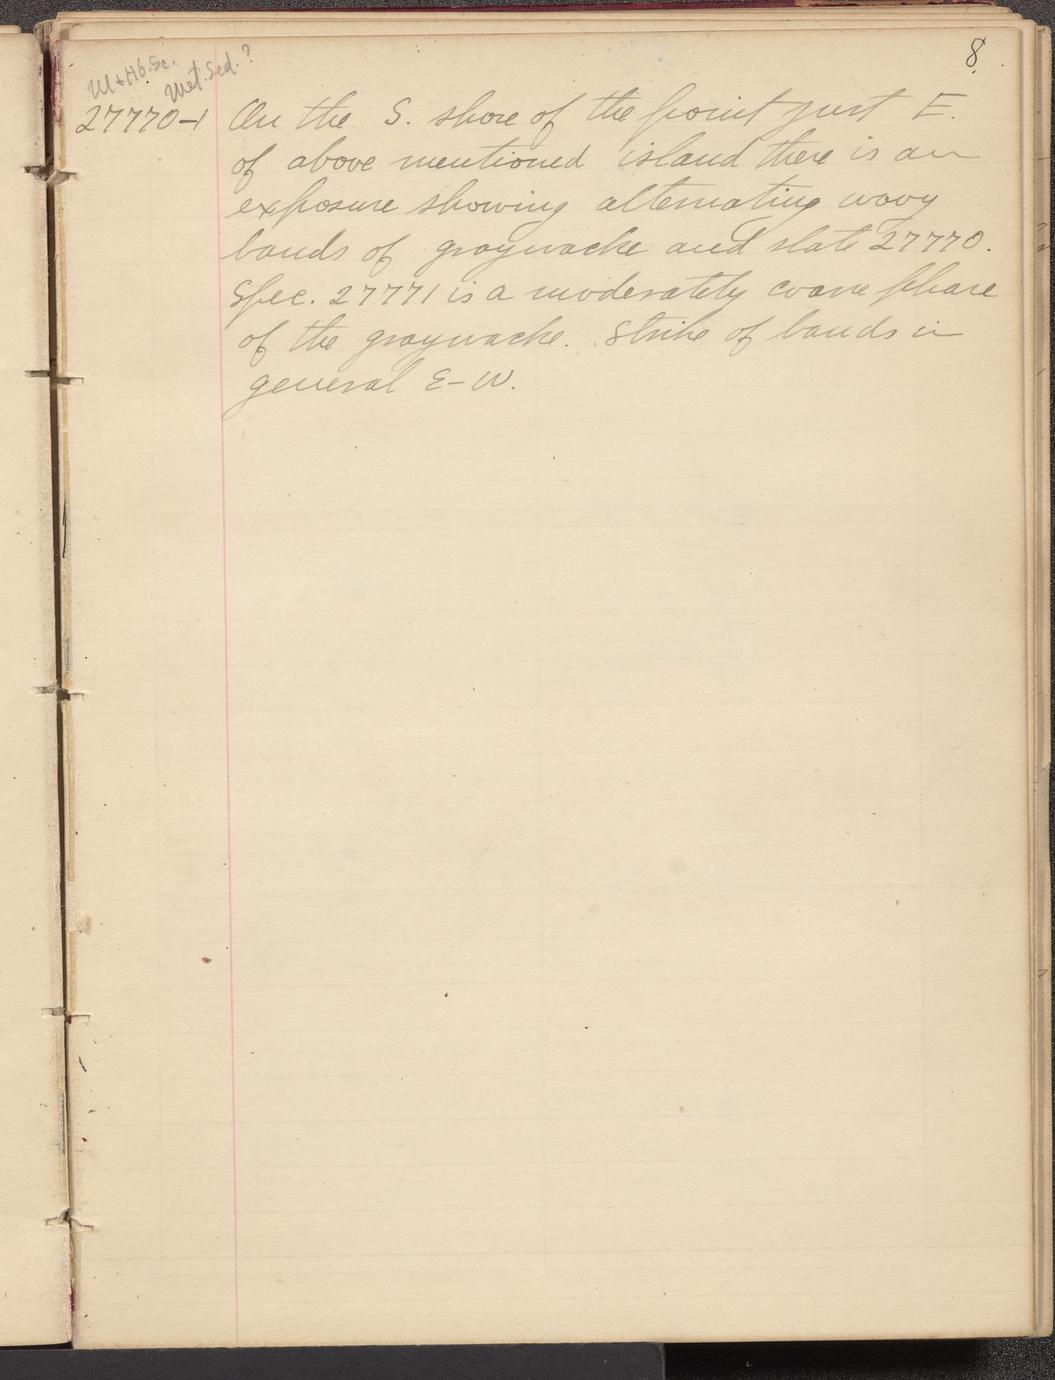 8
M + Hb. Sc.
Met. Sed. ?
27770-1 On the S. shore of the point just E.
of above mentioned island there is an
exposure showing alternating wavy
bands of graywacke and slate 27770.
Spec. 27771 is a moderately coarse phase
of the graywacke. Strike of bands in
general E-W.